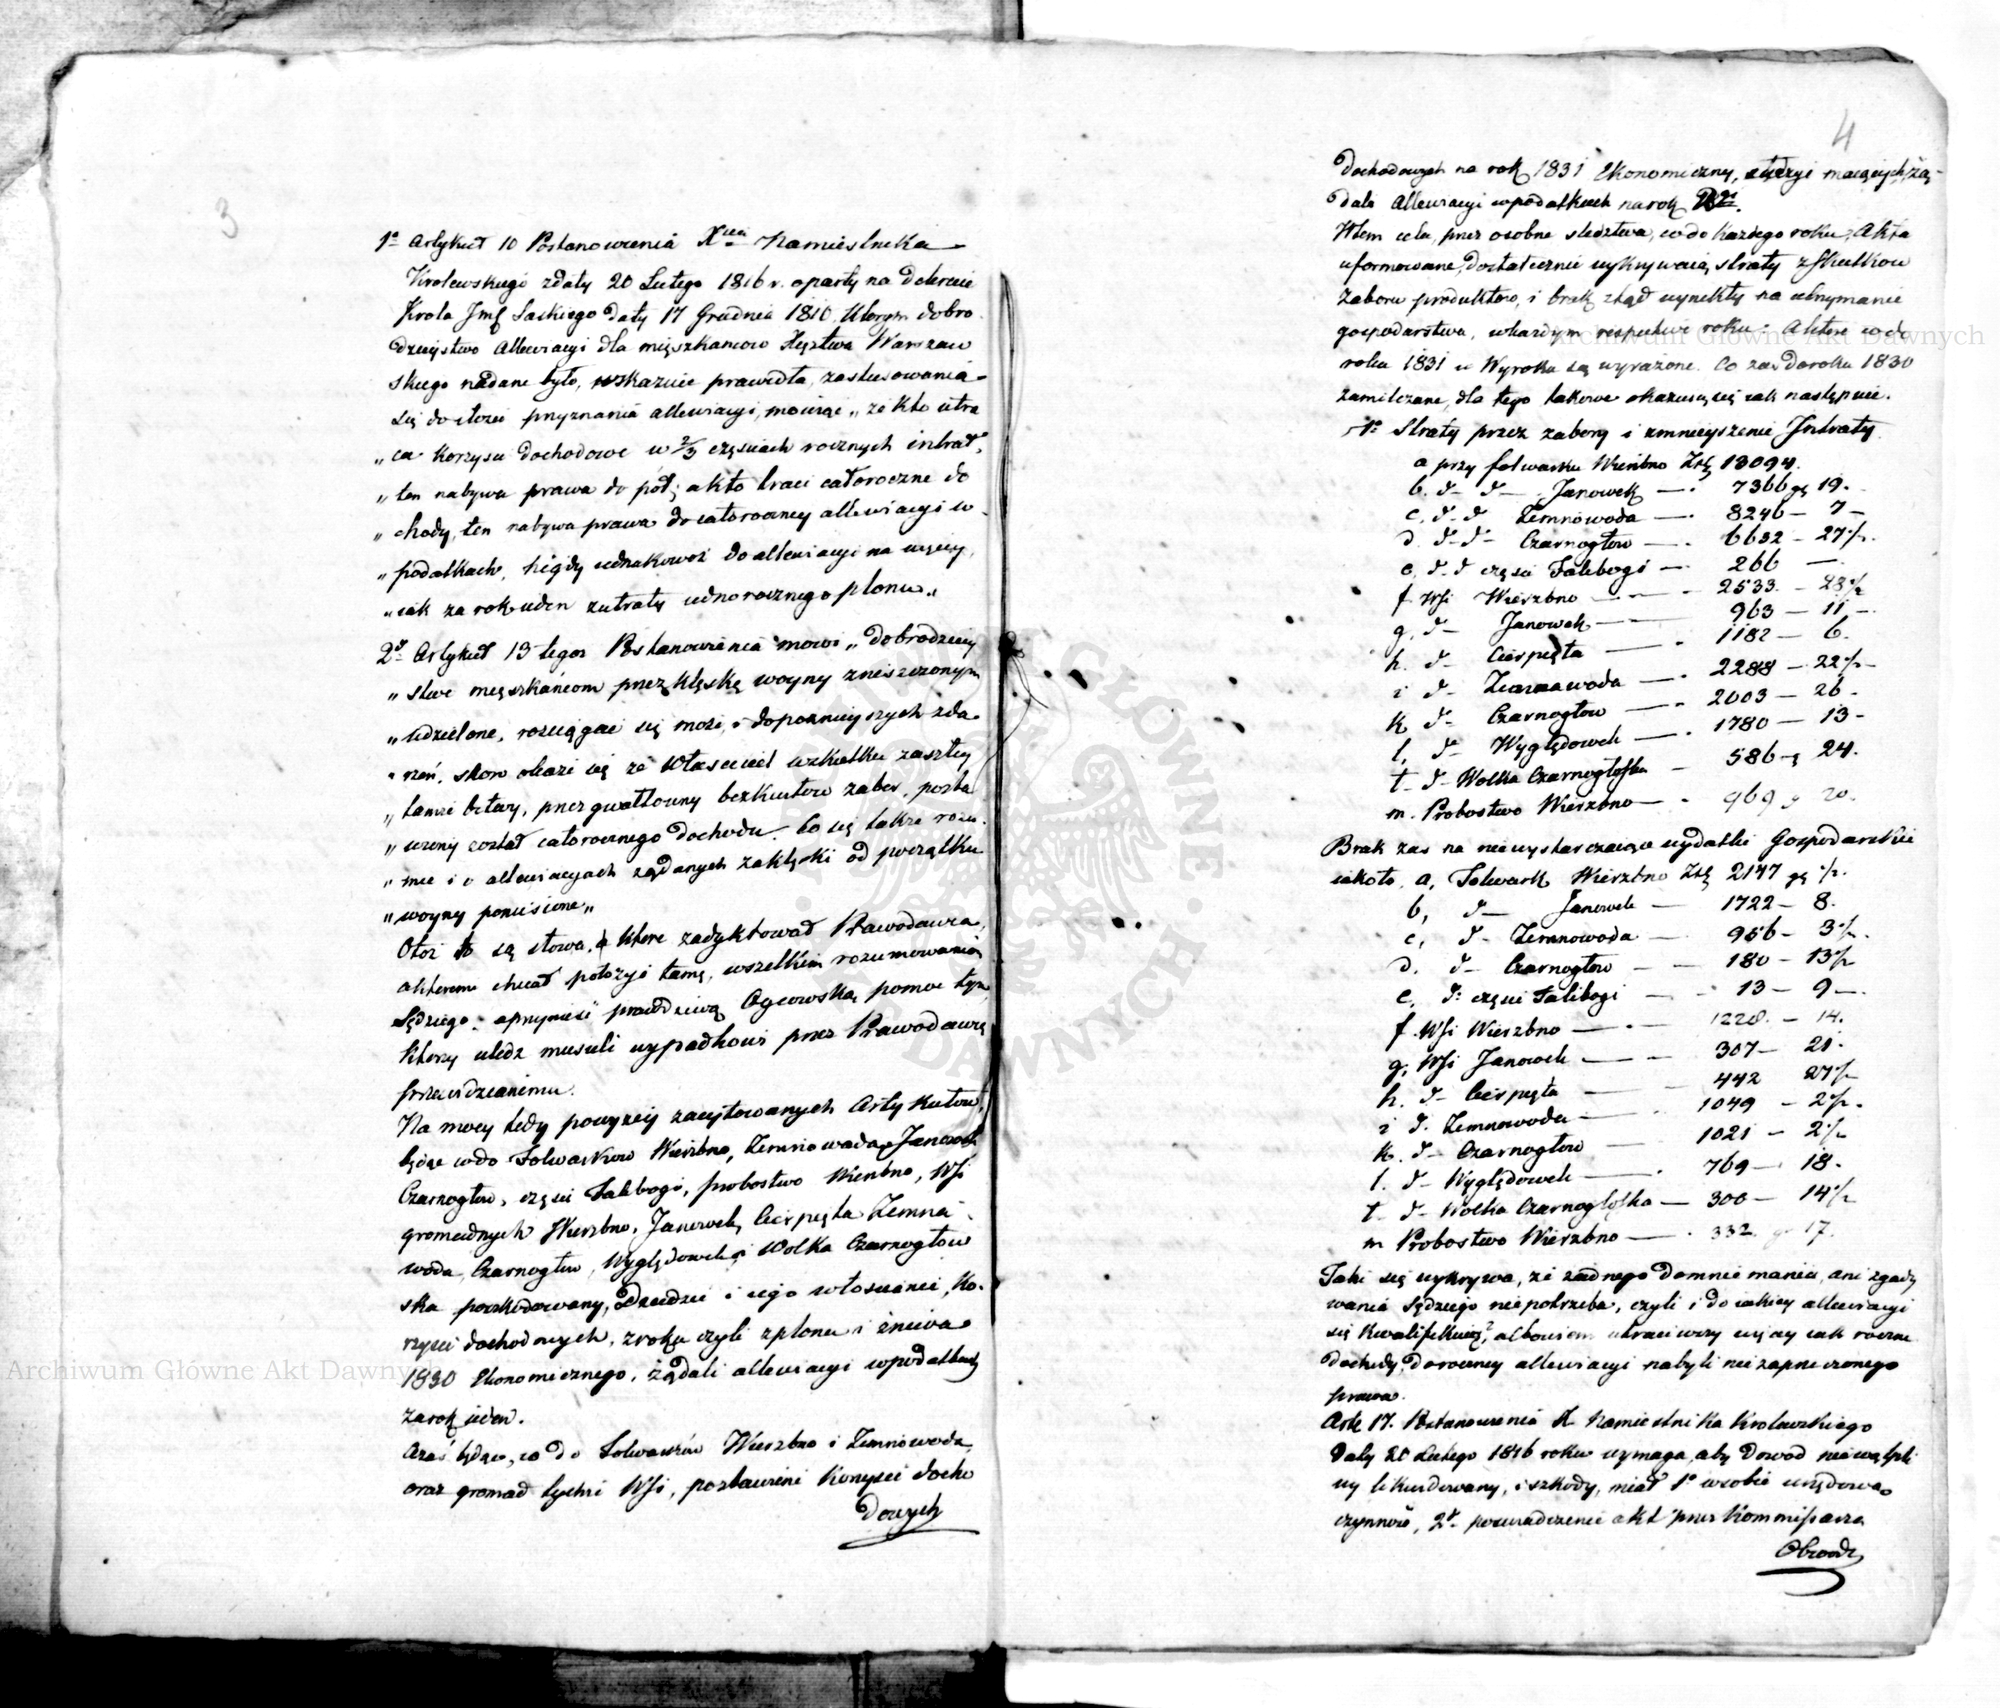 3
1º Artykuł 10 Postanowienia Xcia Namiestnika
Krolewskiego z daty 20 Lutego 1816 r. oparty na Dekrecie
Krola Jmć Saskiego daty 17 Grudnia 1810. ktorym dobro
dzieystwo Allewiacyi dla mięszkancow Xięztwa Warszaw
skiego nadane było, wskazuie prawidła, zastusowania
się do ilosci przyznania allewiacyi, mowiąc „ że kto utra
„ ca korzysci dochodowe w 2/3 częsciach rocznych intrat,
„ ten nabywa prawa do pół; a kto traci całoroczne do
„ chody, ten nabywa prawa do całoroczney allewiacyi w
„ podatkach, nigdy iednakowoż do allewiacyi na więcey,
„ iak za rok ieden z utraty iednorocznego plonu„
2º Artykuł 13 tegoż Postanowienia mowi „ dobrodziey
„ stwo mięszkańcom przez klęskę woyny zniszczonym
„ udzielone, rosciągac się może i do poznieyszych zda
„ rzeń, skoro okaże się że Własciciel w skutku zaszłey
„ tamże bitwy, przez gwałtowny bezkwitow zabor, pozba
„ wiony został całorocznego dochodu. Co się także rozu
„ mie i o allewiacyach żądanych za klęski od początku
„ woyny poniesione„
Otoż to są słowa, ktore zadyktował Prawodawca,
a ktorem chciał położyć tamę, wszelkim rozumowaniom
Sędziego; a przynieść prawdziwą Oycowską pomoc tym,
ktorzy uledz musieli wypadkowi przez Prawodawcę
przewidzianemu.
Na mocy tedy powyzey zacytowanych Artykułow,
będąc co do Folwarkow Wierzbno, Zimnowoda, Janowek
Czarnogłow, częsci Salibogi, probostwo Wierzbno, Wsi
gromadnych Wierzbno, Janowek, Cierpięta Zimna
woda, Czarnogłow, Wyględowek, i Wolka Czarnogłow
ska poszkodowany, Dziedzic i iego włoscianie, ko
rzysci dochodowych, z roku czyli z plonu i żniwa
1830 Ekonomicznego, żądali allewiacyi w podatkach
za rok ieden.
A zaś będąc, co do Folwarkow Wierzbno i Zimnowoda,
oraz gromad tychże Wsi, pozbawieni korzysci docho
dowych
4
dochodowych na rok 1831 Ekonomiczny,
dali Allewiacyi w podatkach na rok
W tem celu, przez osobne sledztwa, co do każdego roku, Akta
uformowane, dostatecznie wykrywaią straty z skutkow
zaboru produktow, i brak ztąd wynikły na utrzymanie
gospodarstwa, w każdym respective roku. A ktore co do
roku 1831 w Wyroku są wyrażone. Co zaś do roku 1830
zamilczane, dla tego takowe okazuią się iak następuie.
1º Straty przez zabory i zmnieyszenie Intraty
a przy folwarku Wierzbno Złp 13094.
b. d– d– Janowek — 7366 gr 19.
c. d– d Zimnowoda — 8246 – 7 –
d. d– d– Czarnogłow — 6632 – 27½.
e. d– d częsci Salibogi — 266 —
f. Wsi Wierzbno — 2533 – 23½
g. d– Janowek — 963 – 11 –
h. d– Cierpięta — 1182 – 6.
i d– Zimnawoda — 2288 – 22½ –
k d– Czarnogłow — 2003 – 26 –
l, d– Wyględowek — 1780 – 13 –
ł– d– Wolka Czarnogłoska – 586 – 24.
m. Probostwo Wierzbno — 969 g 20.
Brak zas na niewystarczaiące wydatki Gospodarskie
iakoto, a, Folwark Wierzbno Złp 2147 gr ½.
b, d– Janowek — 1722 – 8.
c, d– Zimnowoda — 956 – 3½.
d. d– Czarnogłow — 180 – 13½
e, d: częsci Salibogi — 13 – 9 –.
f. Wsi Wierzbno — 1228 – 14.
g, Wsi Janowek — 307 – 21.
h. d– Cierpięta — 442 27½
i d. Zimnowoda — 1049 – 2½.
k. d– Czarnogłow — 1021 – 2½
l. d– Wyględowek — 769 – 18.
ł– d– Wolka Czarnogłoska — 300 – 14½
m Probostwo Wierzbno — 332 g 17.
Taki się wykrywa, że żadnego domniemania, ani zgady
wania Sędziego niepotrzeba, czyli i do iakiey allewiacyi
się kwalifikuią, albowiem utraciwszy więcey iak roczne
dochody, do roczney allewiacyi nabyli niezaprzeczonego
prawa.
Art. 17. Postanowienia X Namiestnika Krolewskiego
Daty 20 Lutego 1816 roku wymaga, aby Dowod niewątpli
wy likwidowany, i szkody, miał 1º w sobie urzędową
czynność, 2º poswiadczenie akt przez Kommissarza
Obwodu
Archiwum Główne Akt Dawnych
Archiwum Główne Akt Dawnych
ARCHIWUM GŁÓWNE AKT DAWNYCH